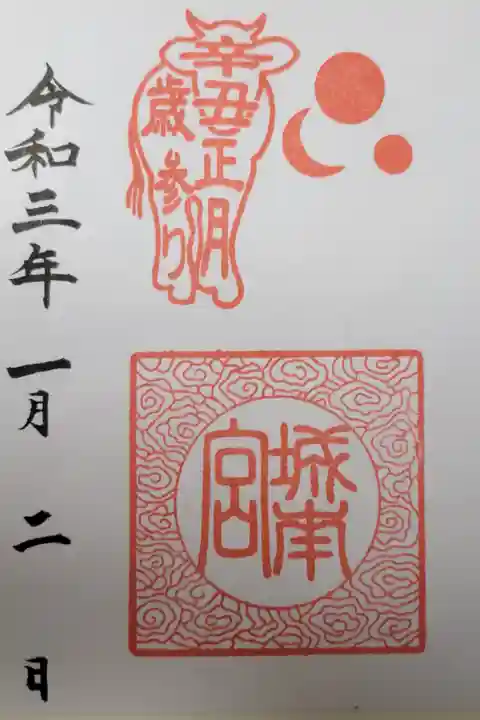 辛丑正月
歳参り
城南
宮
令和三年 一月 二 日